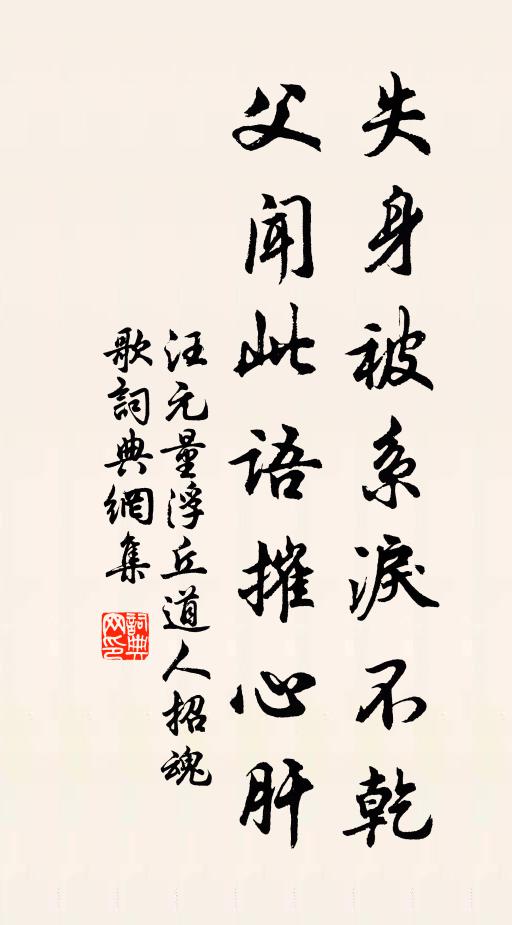 失身被系淚不乾
父聞此語摧心肝
汪元量浮丘道人招魂
歌詞典網集
詞典
网印